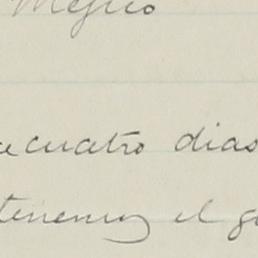 Mejico
cuatro dias
tenemos el